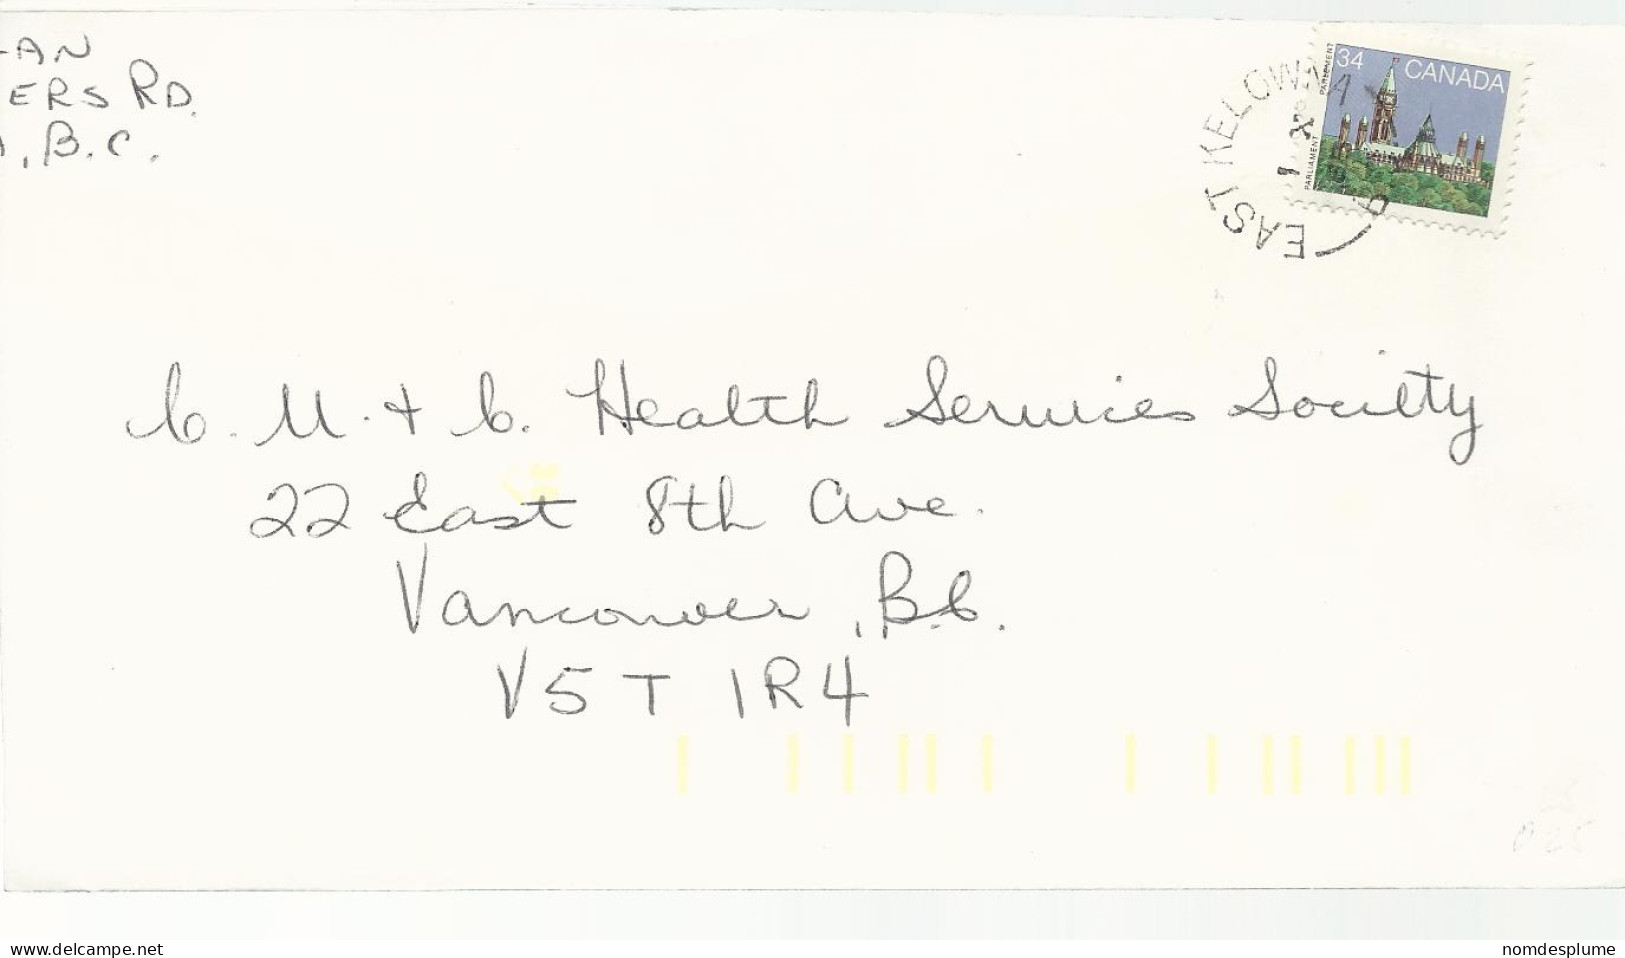 AN
ERS RD.
, B.C.
34 CANADA
PARLIAMENT PARLEMENT
EAST KELOWNA
C. M. + C. Health Services Society
22 East 8th Ave.
Vancouver, B.C.
V5T 1R4
www.delcampe.net
nomdesplume